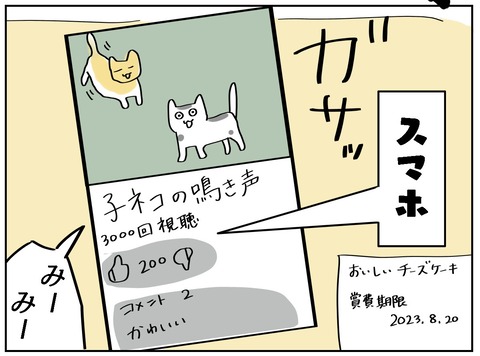 ガサッ
スマホ
子ネコの鳴き声
3000回視聴
200
コメント 2
かわいい
みー
みー
おいしいチーズケーキ
賞費期限
2023.8.20